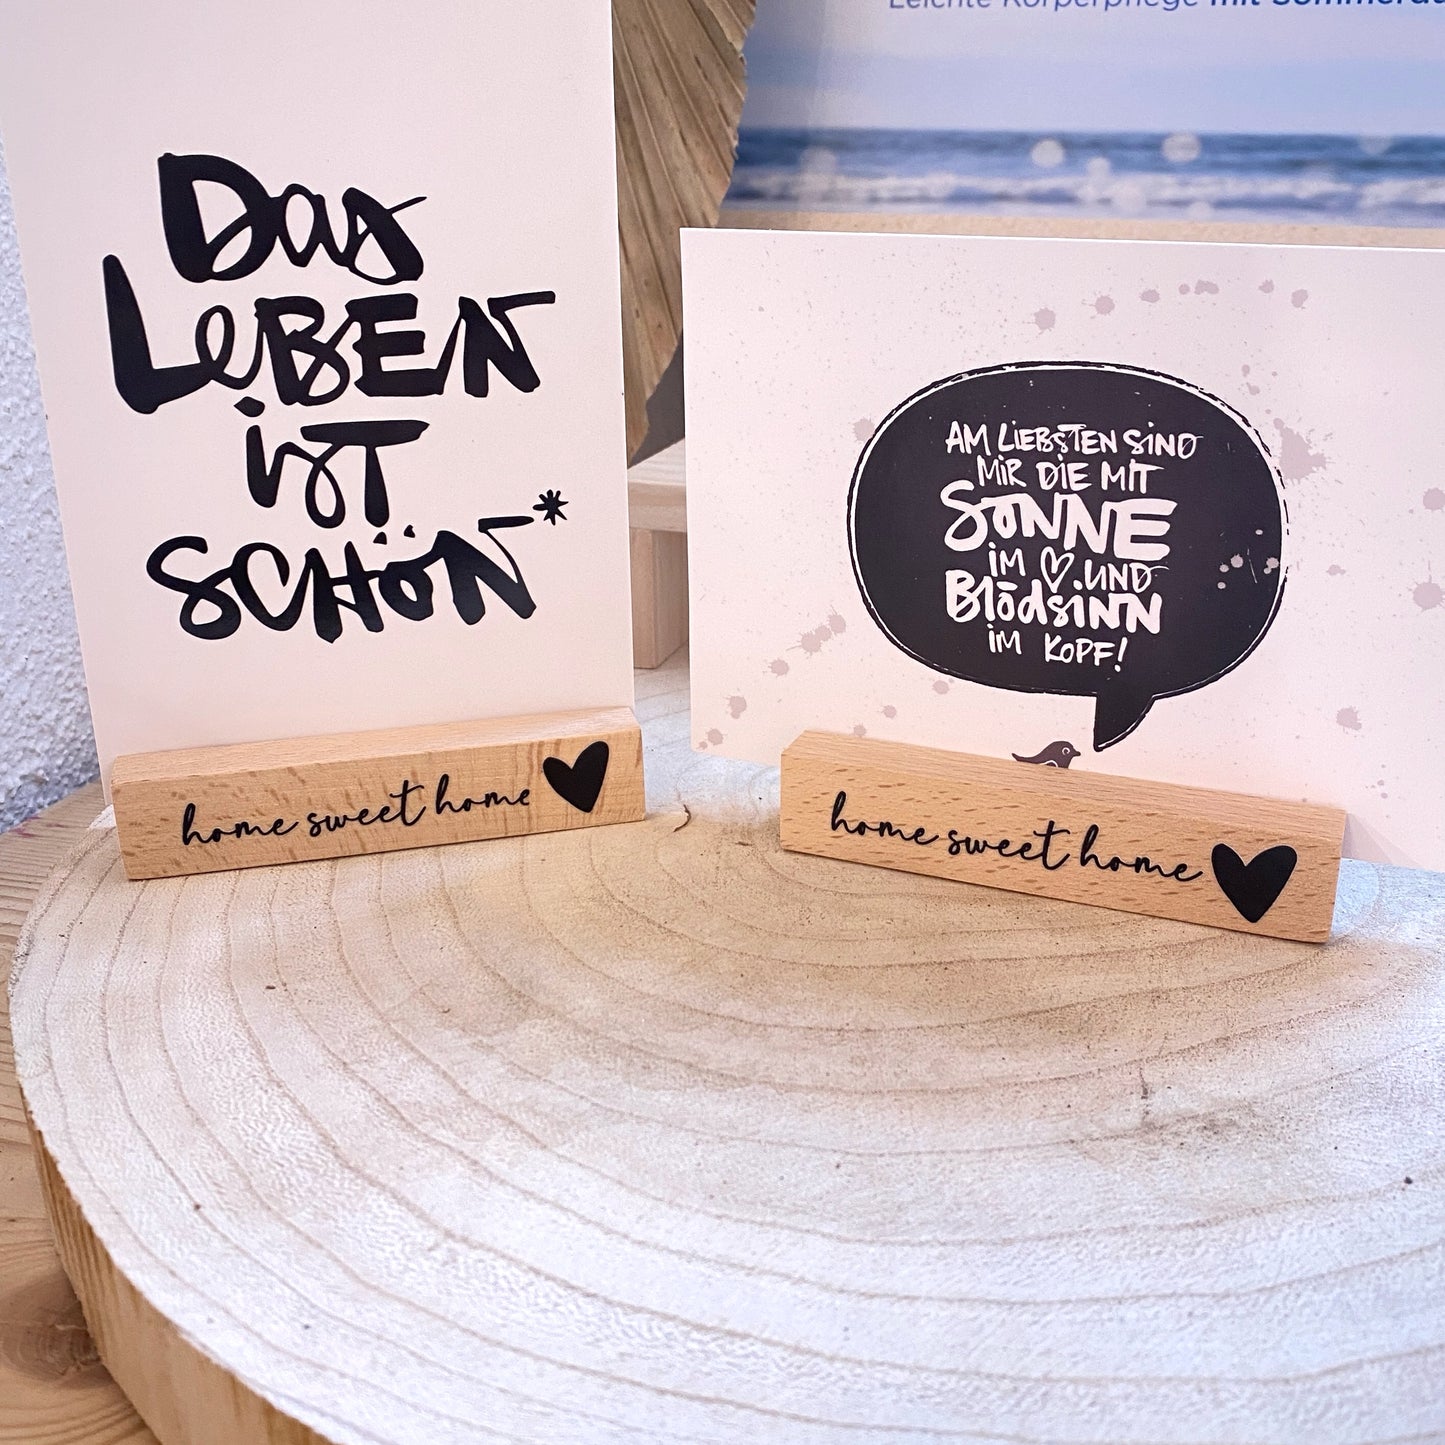 Leichte Körperpflege mit
Das
Leben
ist
schön*
home sweet home
AM LIEBSTEN SIND
MIR DIE MIT
SONNE
IM ♡ UND
BLÖDSINN
IM KOPF!
home sweet home